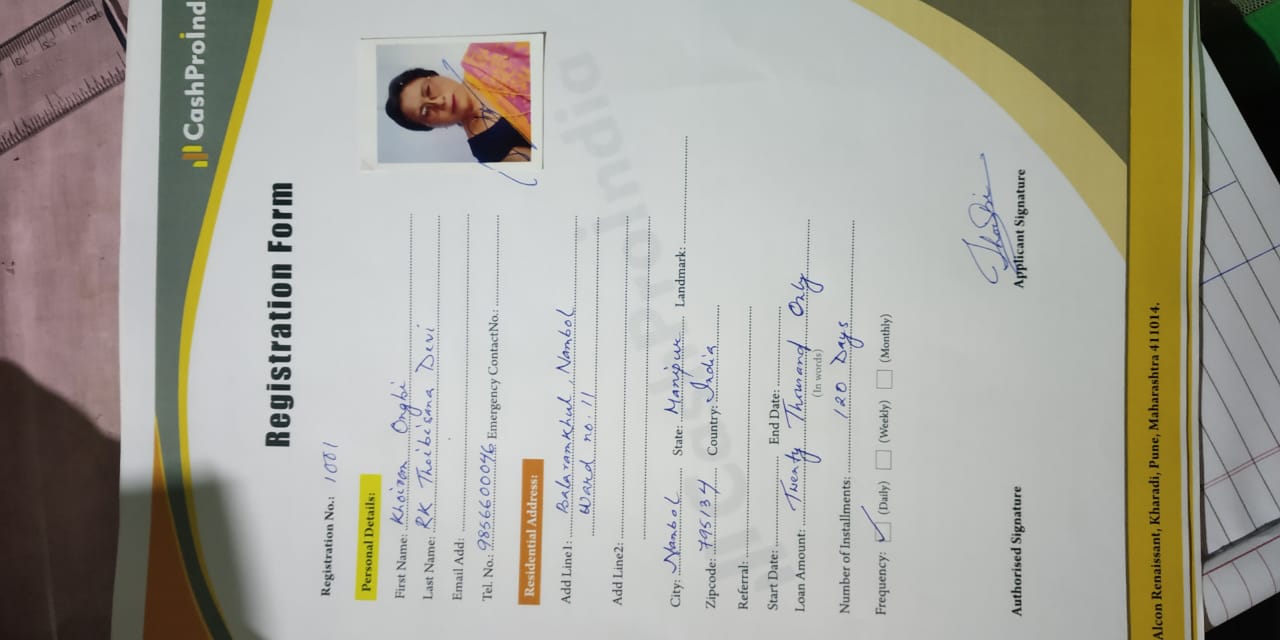 CashProInd
Registration Form
Registration No.: 1001
Personal Details:
First Name: Khoirom Ongbi
Last Name: RK Thoibisana Devi
Email Add:
Tel. No.: 9856600046 Emergency ContactNo.:
Residential Address:
Add Line1: Balaramkhul, Nambol
Ward no. 11
Add Line2:
City: Nambol State: Manipur Landmark:
Zipcode: 795134 Country: India
Referral:
Start Date: End Date:
Loan Amount: Twenty Thousand Only
(In words)
Number of Installments: 120 Days
Frequency: (Daily) (Weekly) (Monthly)
Authorised Signature Applicant Signature
Alcon Renaissant, Kharadi, Pune, Maharashtra 411014.